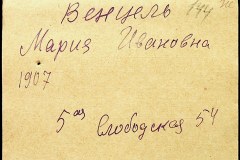 Венцель 144
Мария Ивановна
1907
5ая Слободская 54